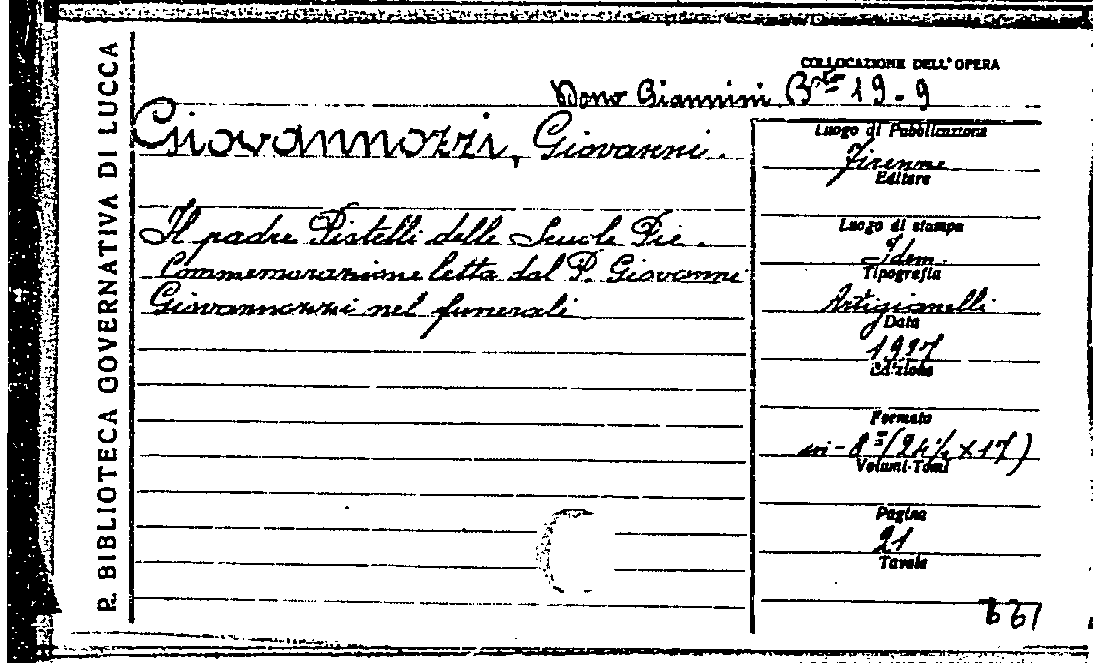 R. BIBLIOTECA GOVERNATIVA DI LUCCA
COLLOCAZIONE DELL'OPERA
Dono Giannini Bta 19-9
Giovannozzi, Giovanni.
Il padre Pistelli delle Scuole Pie.
Commemorazione letta dal P. Giovanni
Giovannozzi nel funerali
Luogo di Pubblicazione
Firenze
Editore
Luogo di stampa
Idem.
Tipografia
Artigianelli
Data
1927
Edizione
Formato
in-8° (24½ x 17)
Volumi-Tomi
Pagine
21
Tavole